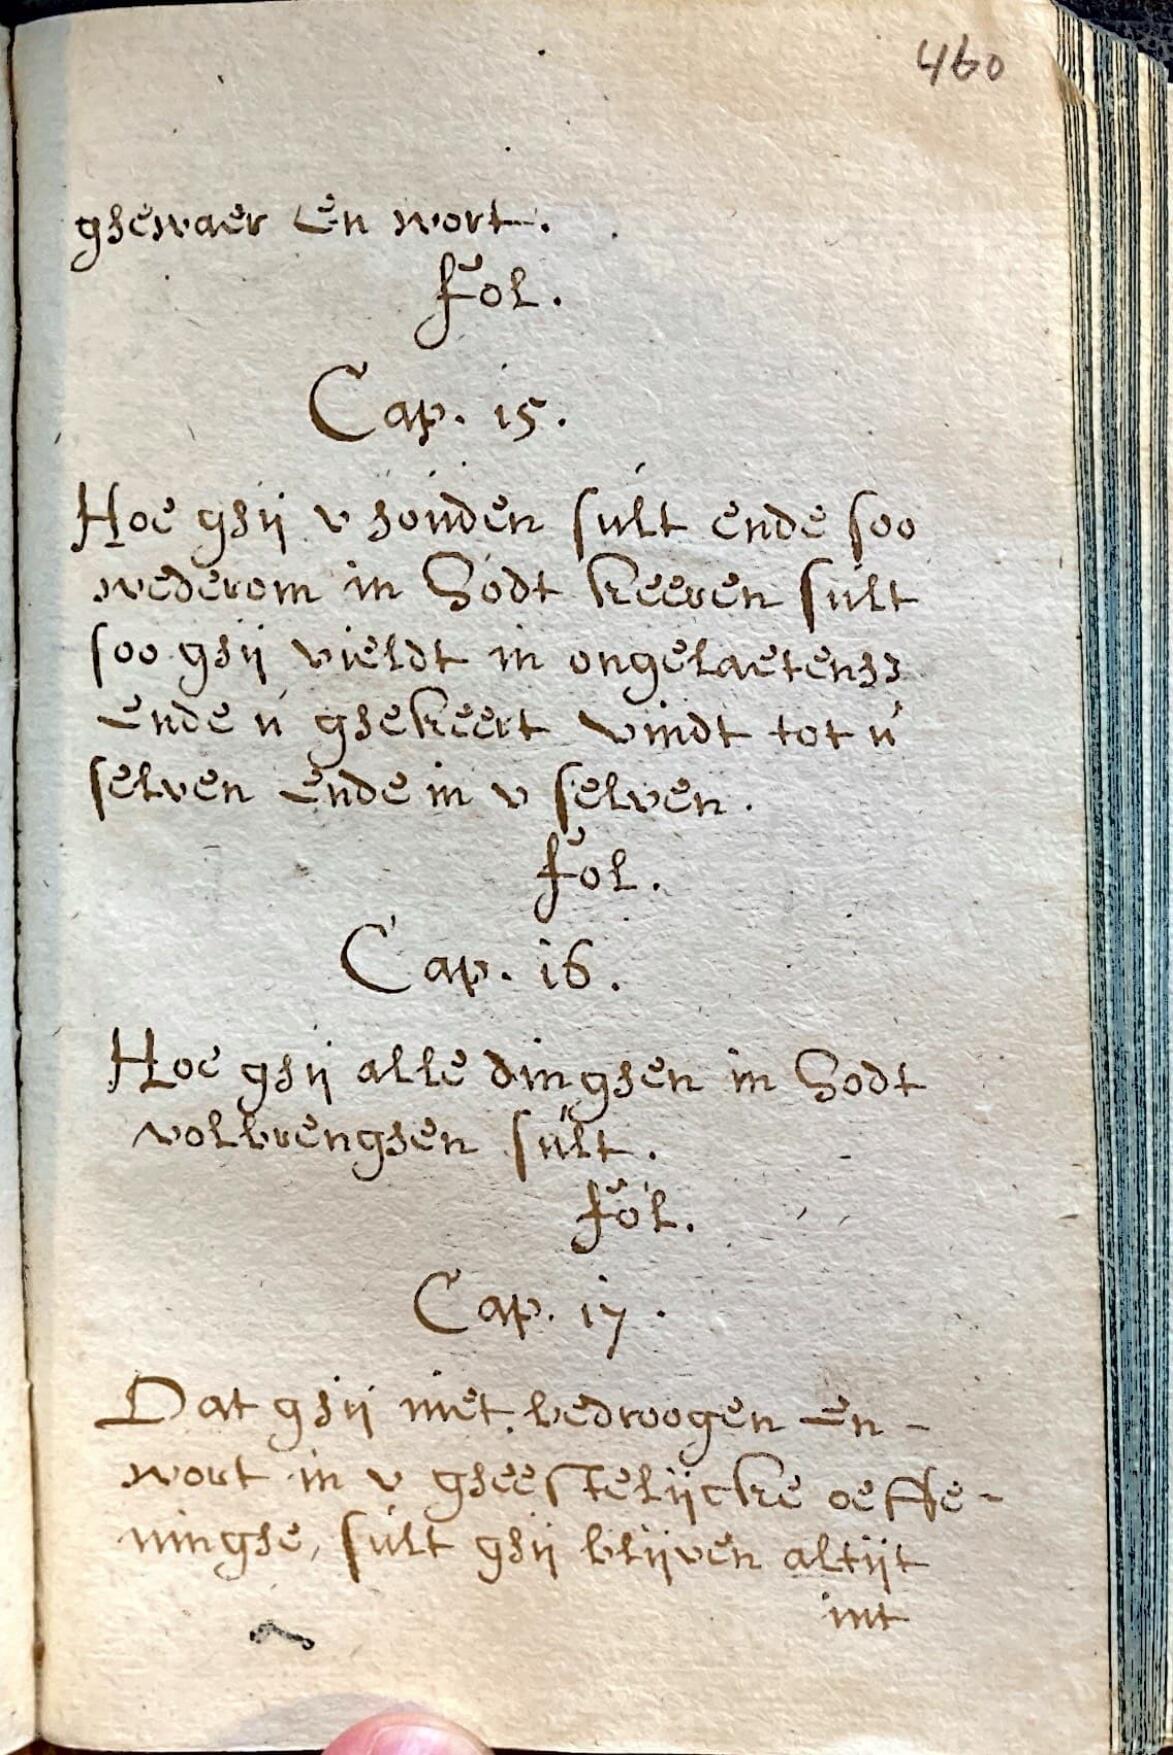 460
ghewaer en wort.
fol.
Cap. 15.
Hoe ghij v houden sult ende soo
wederom in Godt keeren sult
soo ghij vieldt in ongelaetenh3
ende u ghekeert vindt tot u
selven ende in v selven.
fol.
Cap. 16.
Hoe ghij alle dinghen in Godt
volbrenghen sult.
fol.
Cap. 17.
Dat ghij niet bedroogen en -
wort in v gheestelijcke oeffe-
ninghe, sult ghij blijven altijt
int